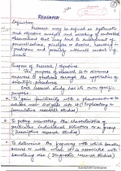 Research
Definition
Research may be defined as systematic
and objective analysis and recording of controlled
observations that may lead to development of
generalisations, principles or theories, resulting in
prediction and possibly ultimate control of
events.
Purpose of Research / Objectives
The purpose of research is to discover
answers to questions through the application of
scientific procedures.
Each research study has its own specific
purpose.
* To gain familiarity with a phenomenon or to
achieve new insights into it (Exploratory or
formulative research studies)
* To portray accurately the characteristics of
particular individual, situation or a group
(Descriptive research studies)
* To determine the frequency with which something
occurs or with which it is associated with
something else (Diagnostic research studies)